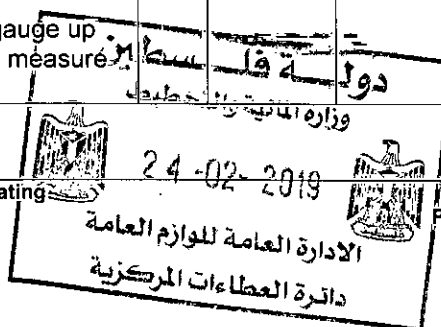 gauge up
measure
دولة فلسطين
وزارة المالية والتخطيط
24-02-2019
ating
الادارة العامة للوازم العامة
دائرة العطاءات المركزية